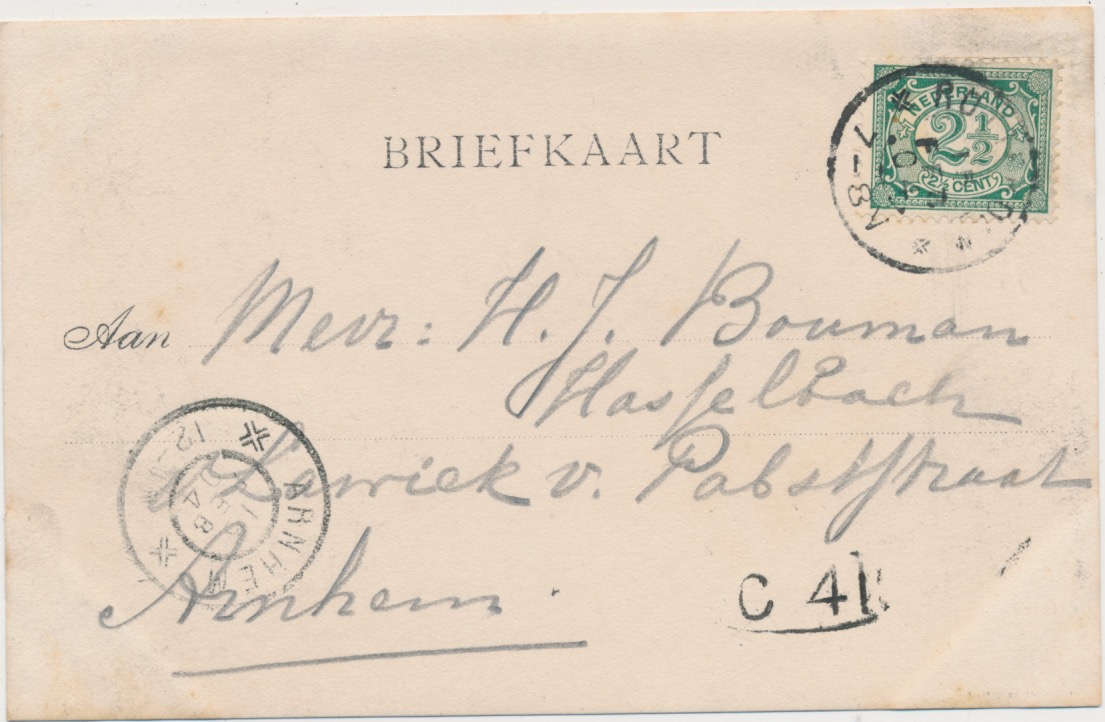 BRIEFKAART
NEDERLAND
2½
2½ CENT
7-8
Aan Mevr: H. J. Bouman
Hasselbach
v. Pabststraat
Arnhem.
ARNHEM
FEB
04
C 41